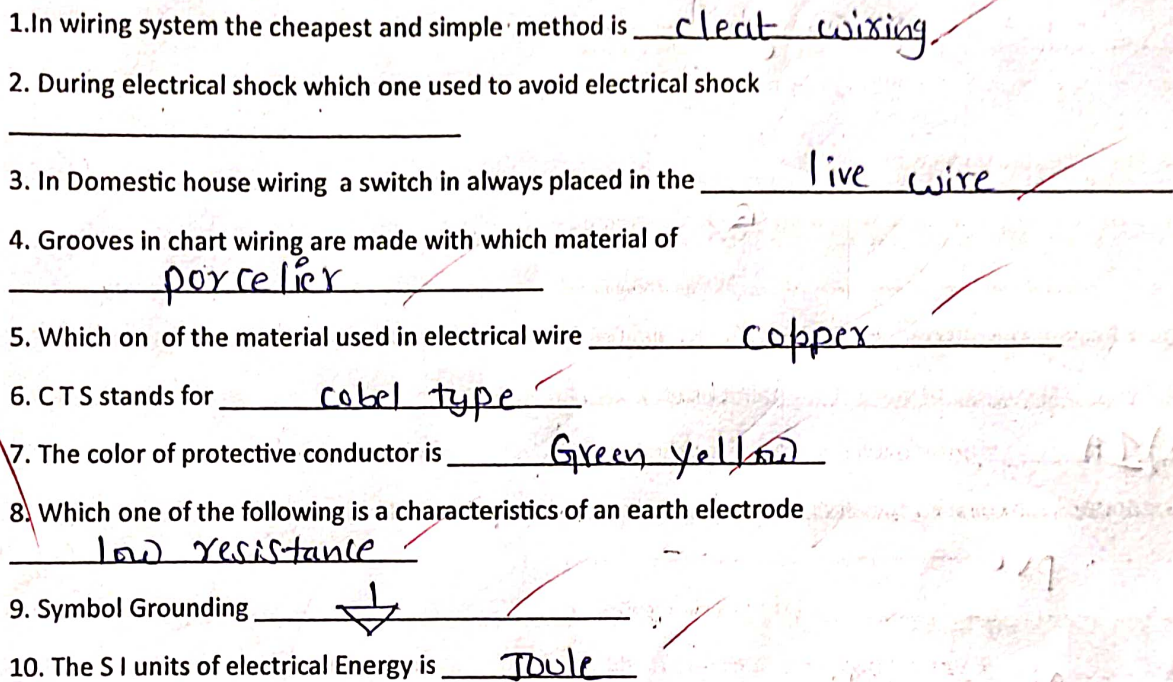 1.In wiring system the cheapest and simple method is cleat wiring.
2. During electrical shock which one used to avoid electrical shock
3. In Domestic house wiring a switch in always placed in the live wire
4. Grooves in chart wiring are made with which material of
porcelier
5. Which on of the material used in electrical wire copper
6. C T S stands for cobel type
7. The color of protective conductor is Green yellow
8. Which one of the following is a characteristics of an earth electrode
low resistance
9. Symbol Grounding
10. The S I units of electrical Energy is Joule